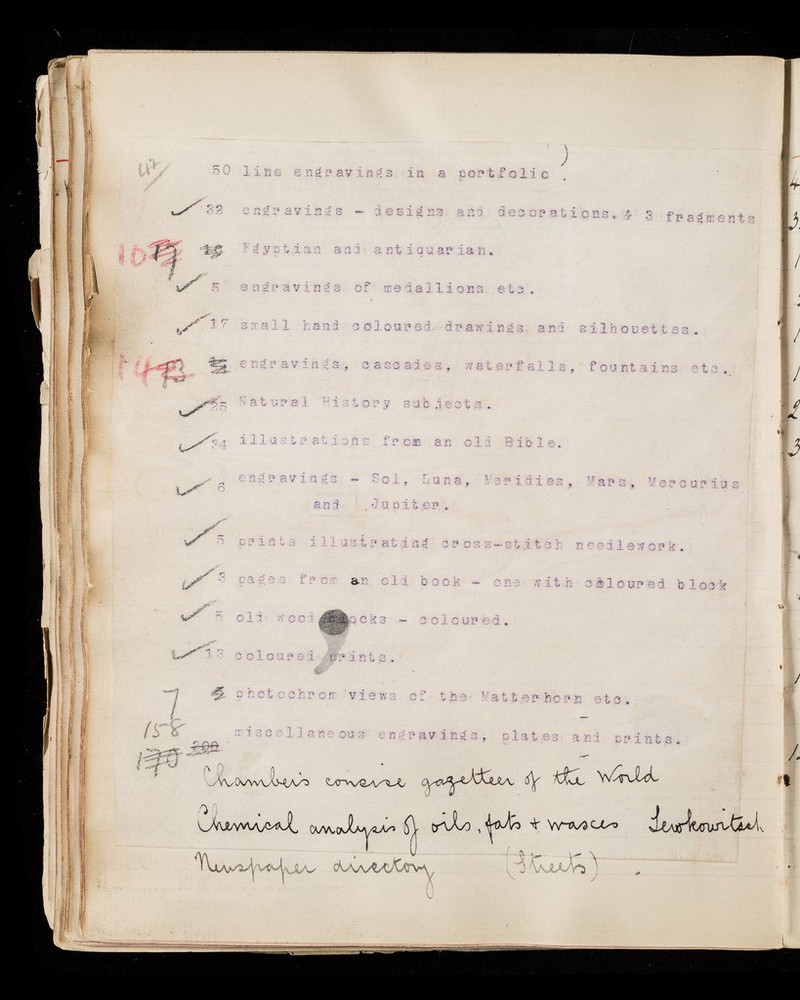 47 50 line engravings in a portfolio ).
32 engravings - designs and decorations. & 3 fragments
10 17 Egyptian and antiquarian.
5 engravings of medallions etc.
17 small hand coloured drawings and silhouettes.
14 13 engravings, cascades, waterfalls, fountains etc.
25 Natural History subjects.
34 illustrations from an old Bible.
6 engravings - Sol, Luna, Meridies, Mars, Mercurius
and Jupiter.
5 prints illustrating cross-stitch needlework.
3 pages from an old book - one with coloured block
5 old wood blocks - coloured.
13 coloured prints.
7 photochrom views of the Matterhorn etc.
158
170 200 miscellaneous engravings, plates and prints.
Chambers concise gazetteer of the World
Chemical analysis of oils, fats + waxes Lewkowitsch
Newspaper directory (Streets).